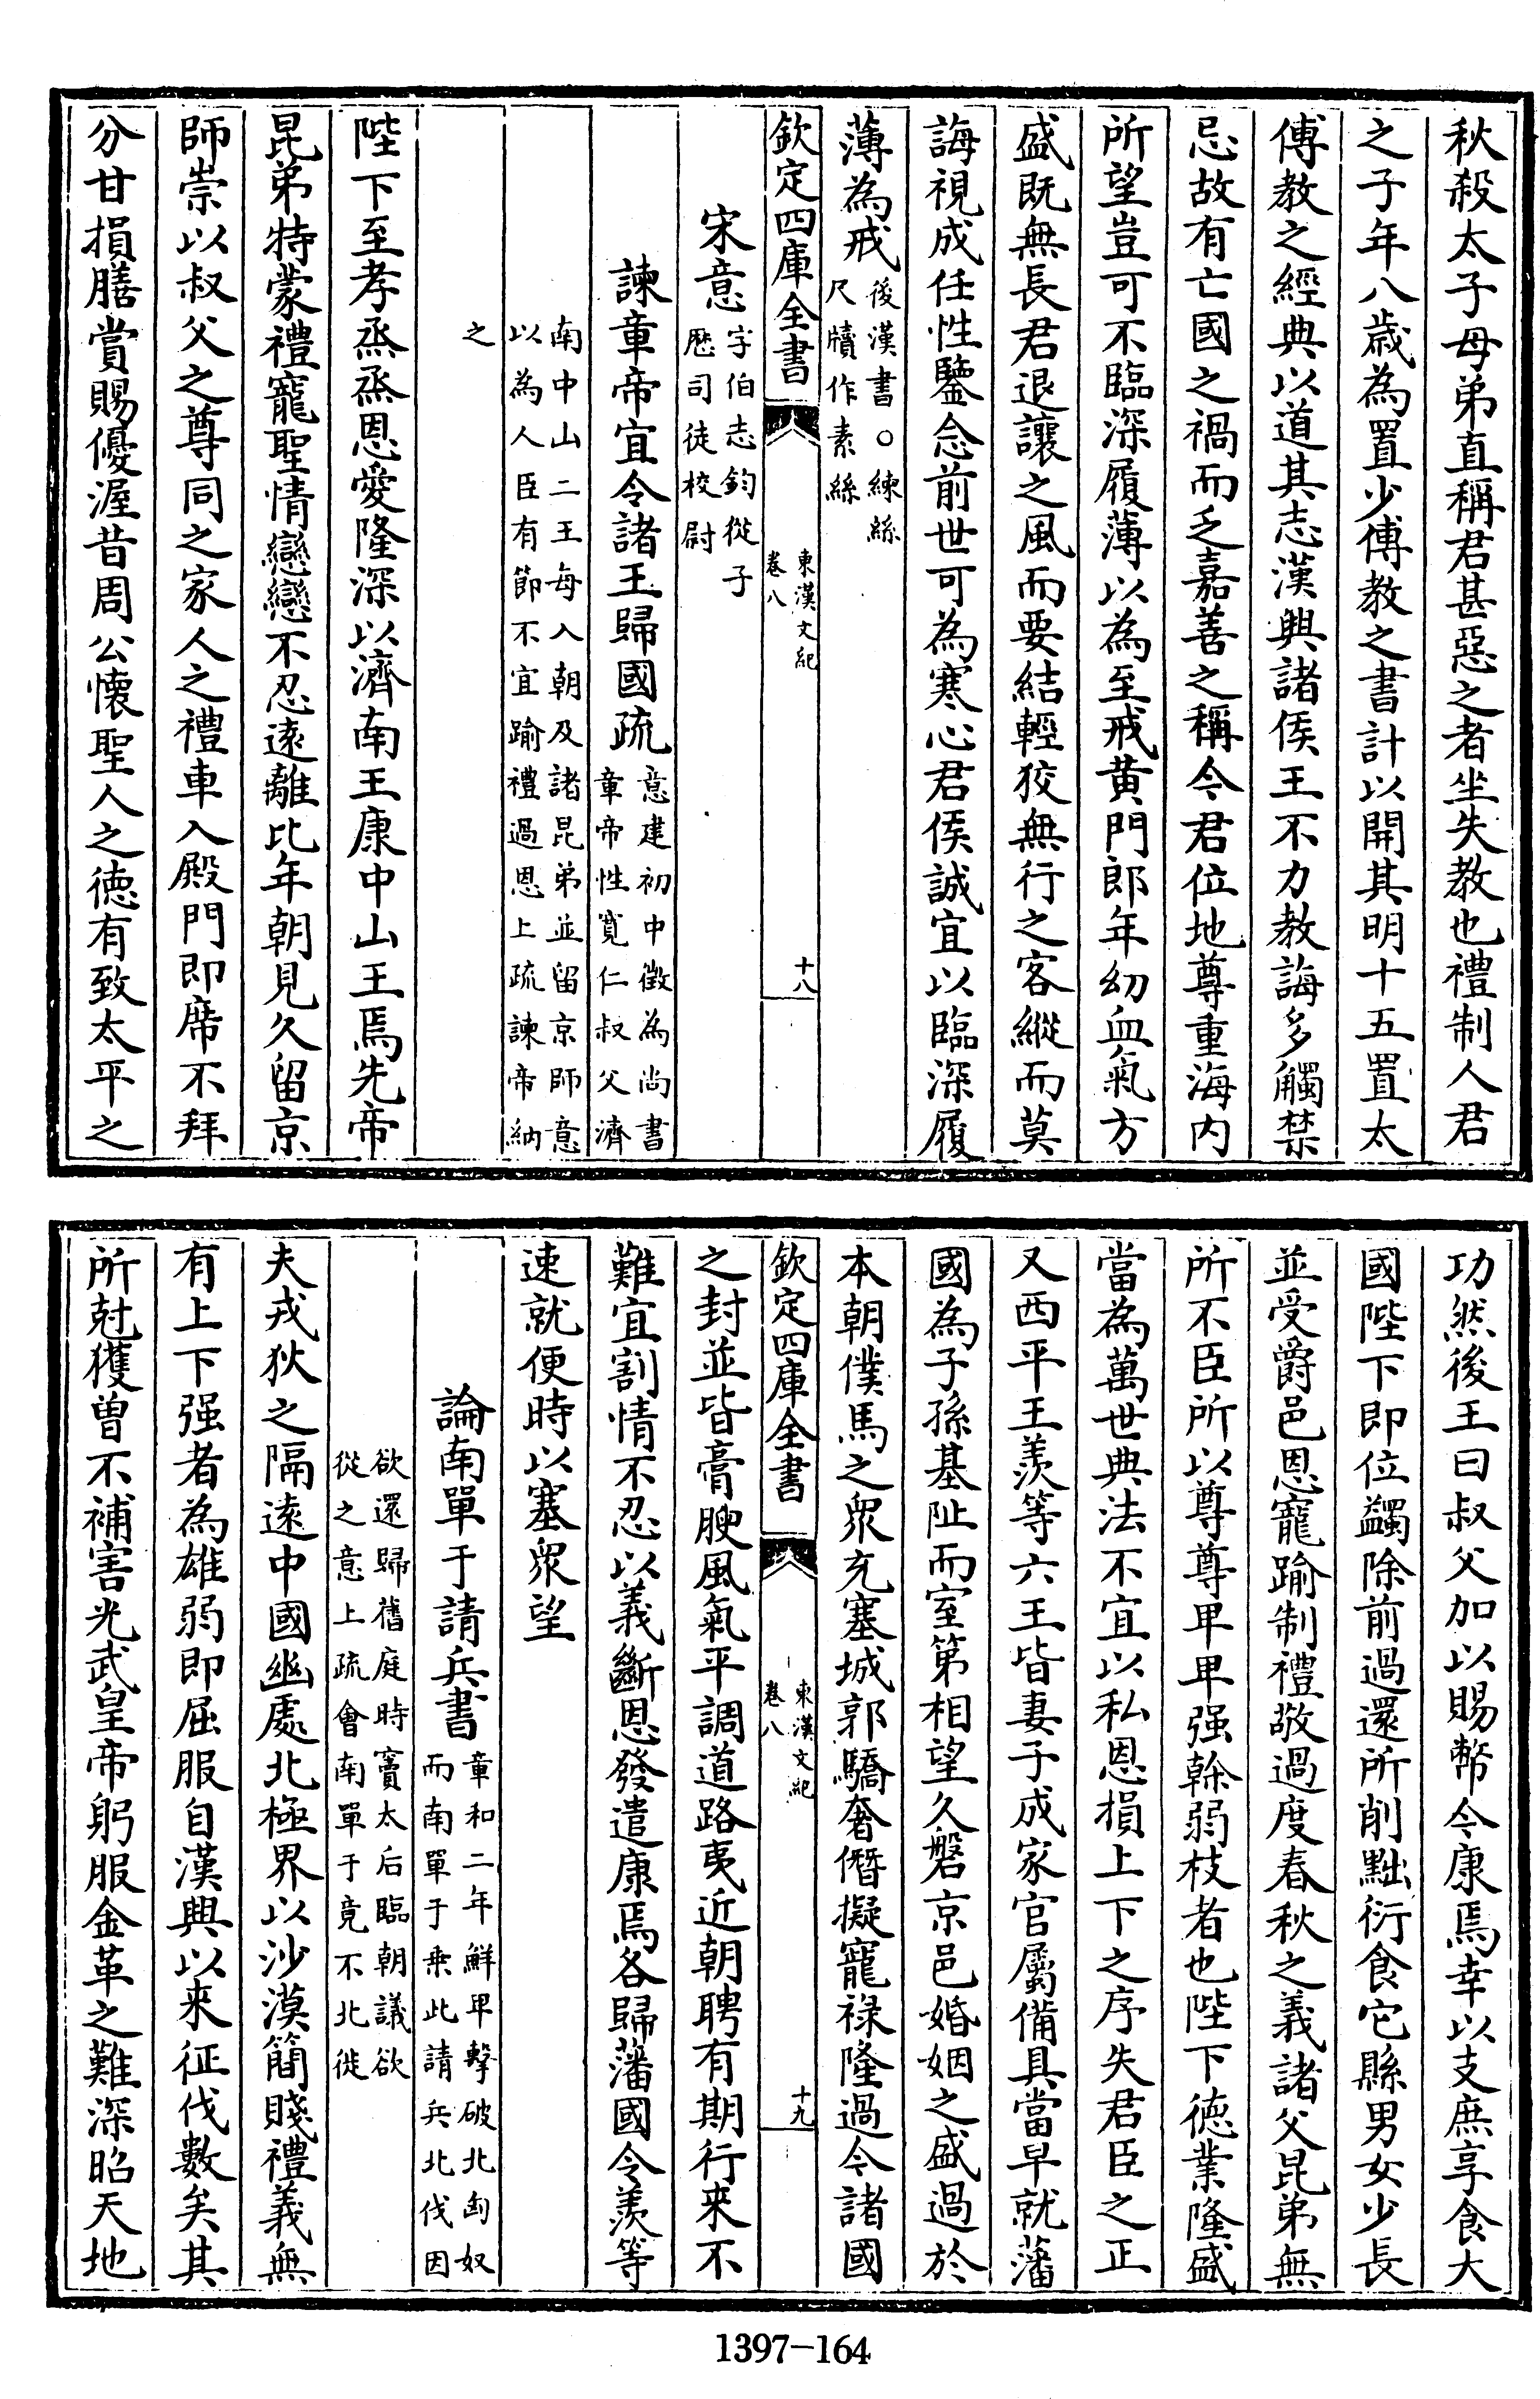 秋殺太子母弟直稱君甚惡之者坐失教也禮制人君
之子年八歲為置少傅教之書計以開其明十五置太
傅教之經典以道其志漢興諸侯王不力教誨多觸禁
忌故有亡國之禍而乏嘉善之稱今君位地尊重海內
所望豈可不臨深履薄以為至戒黃門郎年幼血氣方
盛既無長君退讓之風而要結輕狡無行之客縱而莫
誨視成任性鑒念前世可為寒心君侯誠宜以臨深履
薄為戒後漢書○練絲
尺牘作素絲
欽定四庫全書
東漢文紀
卷八
十八
宋意字伯志鈞從子
歷司徒校尉
諫章帝宜令諸王歸國疏意建初中徵為尚書
章帝性寬仁叔父濟
南中山二王每入朝及諸昆弟並留京師意
以為人臣有節不宜踰禮過恩上疏諫帝納
之
陛下至孝烝烝恩愛隆深以濟南王康中山王焉先帝
昆弟特蒙禮寵聖情戀戀不忍遠離比年朝見久留京
師崇以叔父之尊同之家人之禮車入殿門即席不拜
分甘損膳賞賜優渥昔周公懷聖人之德有致太平之
功然後王曰叔父加以賜幣今康焉幸以支庶享食大
國陛下即位蠲除前過還所削黜衍食它縣男女少長
並受爵邑恩寵踰制禮敬過度春秋之義諸父昆弟無
所不臣所以尊尊卑卑强榦弱枝者也陛下德業隆盛
當為萬世典法不宜以私恩損上下之序失君臣之正
又西平王羨等六王皆妻子成家官屬備具當早就藩
國為子孫基阯而室第相望久磐京邑婚姻之盛過於
本朝僕馬之衆充塞城郭驕奢僭擬寵祿隆過今諸國
欽定四庫全書
東漢文紀
卷八
十九
之封並皆膏腴風氣平調道路夷近朝聘有期行來不
難宜割情不忍以義斷恩發遣康焉各歸藩國令羨等
速就便時以塞衆望
論南單于請兵書章和二年鮮卑擊破北匈奴
而南單于乗此請兵北伐因
欲還歸舊庭時竇太后臨朝議欲
從之意上疏會南單于竟不北徙
夫戎狄之隔遠中國幽處北極界以沙漠簡賤禮義無
有上下强者為雄弱即屈服自漢興以來征伐數矣其
所尅獲曾不補害光武皇帝躬服金革之難深昭天地
1397-164